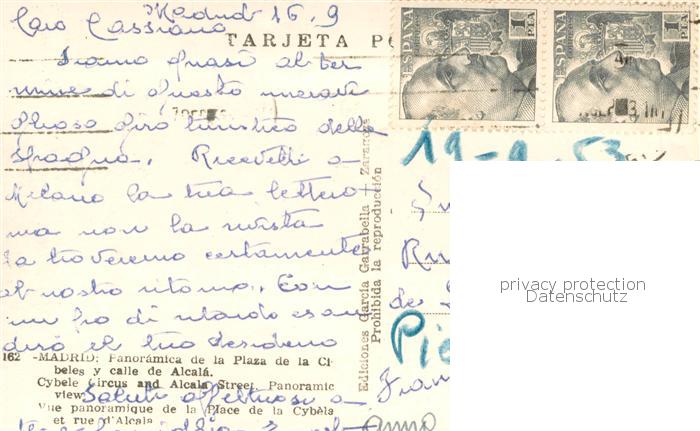 Madrid 16.9
Caro Cassiano
TARJETA PO
ESPAÑA 1 PTA
ESPAÑA 1 PTA
Siamo quasi al ter
mine di questo meravi
glioso giro turistico della
Spagna. Ricevetti a
Milano la tua lettera
ma non la rivista
la troveremo certamente
al nostro ritorno. Con
un po di ritardo esau
dirò il tuo desiderio
Saluti affettuosi a
19-9-53
Ediciones García Garrabella - Zaragoza
Prohibida la reproducción
privacy protection
Datenschutz
162 -MADRID: Panorámica de la Plaza de la Ci-
beles y calle de Alcalá.
Cybele Circus and Alcala Street. Panoramic
view
Vue panoramique de la Place de la Cybèla
et rue d'Alcala